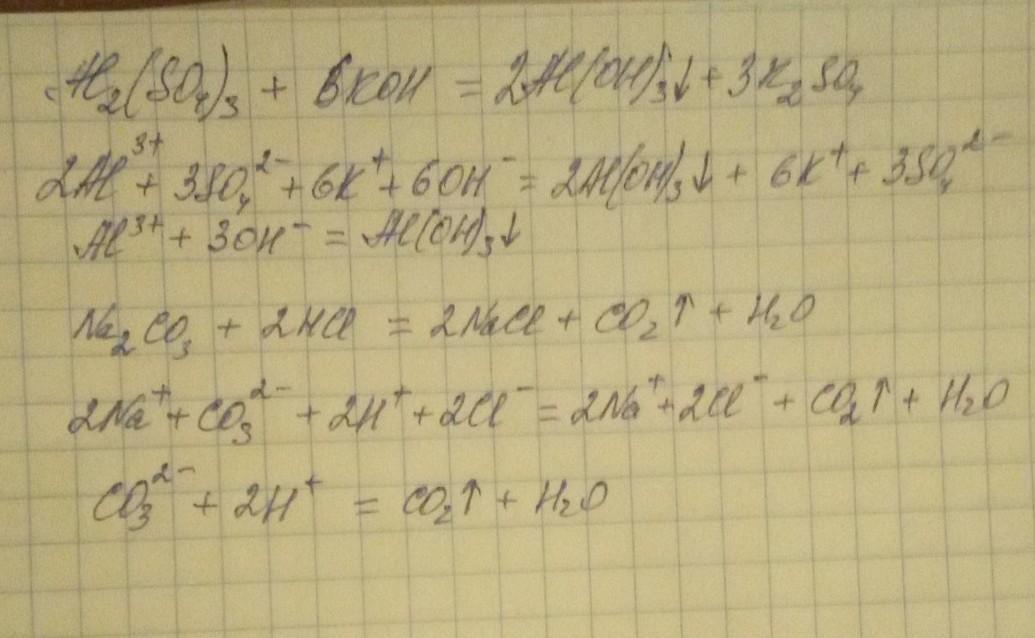 Al₂(SO₄)₃ + 6KOH = 2Al(OH)₃↓ + 3K₂SO₄
2Al³⁺ + 3SO₄²⁻ + 6K⁺ + 6OH⁻ = 2Al(OH)₃↓ + 6K⁺ + 3SO₄²⁻
Al³⁺ + 3OH⁻ = Al(OH)₃↓
Na₂CO₃ + 2HCl = 2NaCl + CO₂↑ + H₂O
2Na⁺ + CO₃²⁻ + 2H⁺ + 2Cl⁻ = 2Na⁺ + 2Cl⁻ + CO₂↑ + H₂O
CO₃²⁻ + 2H⁺ = CO₂↑ + H₂O